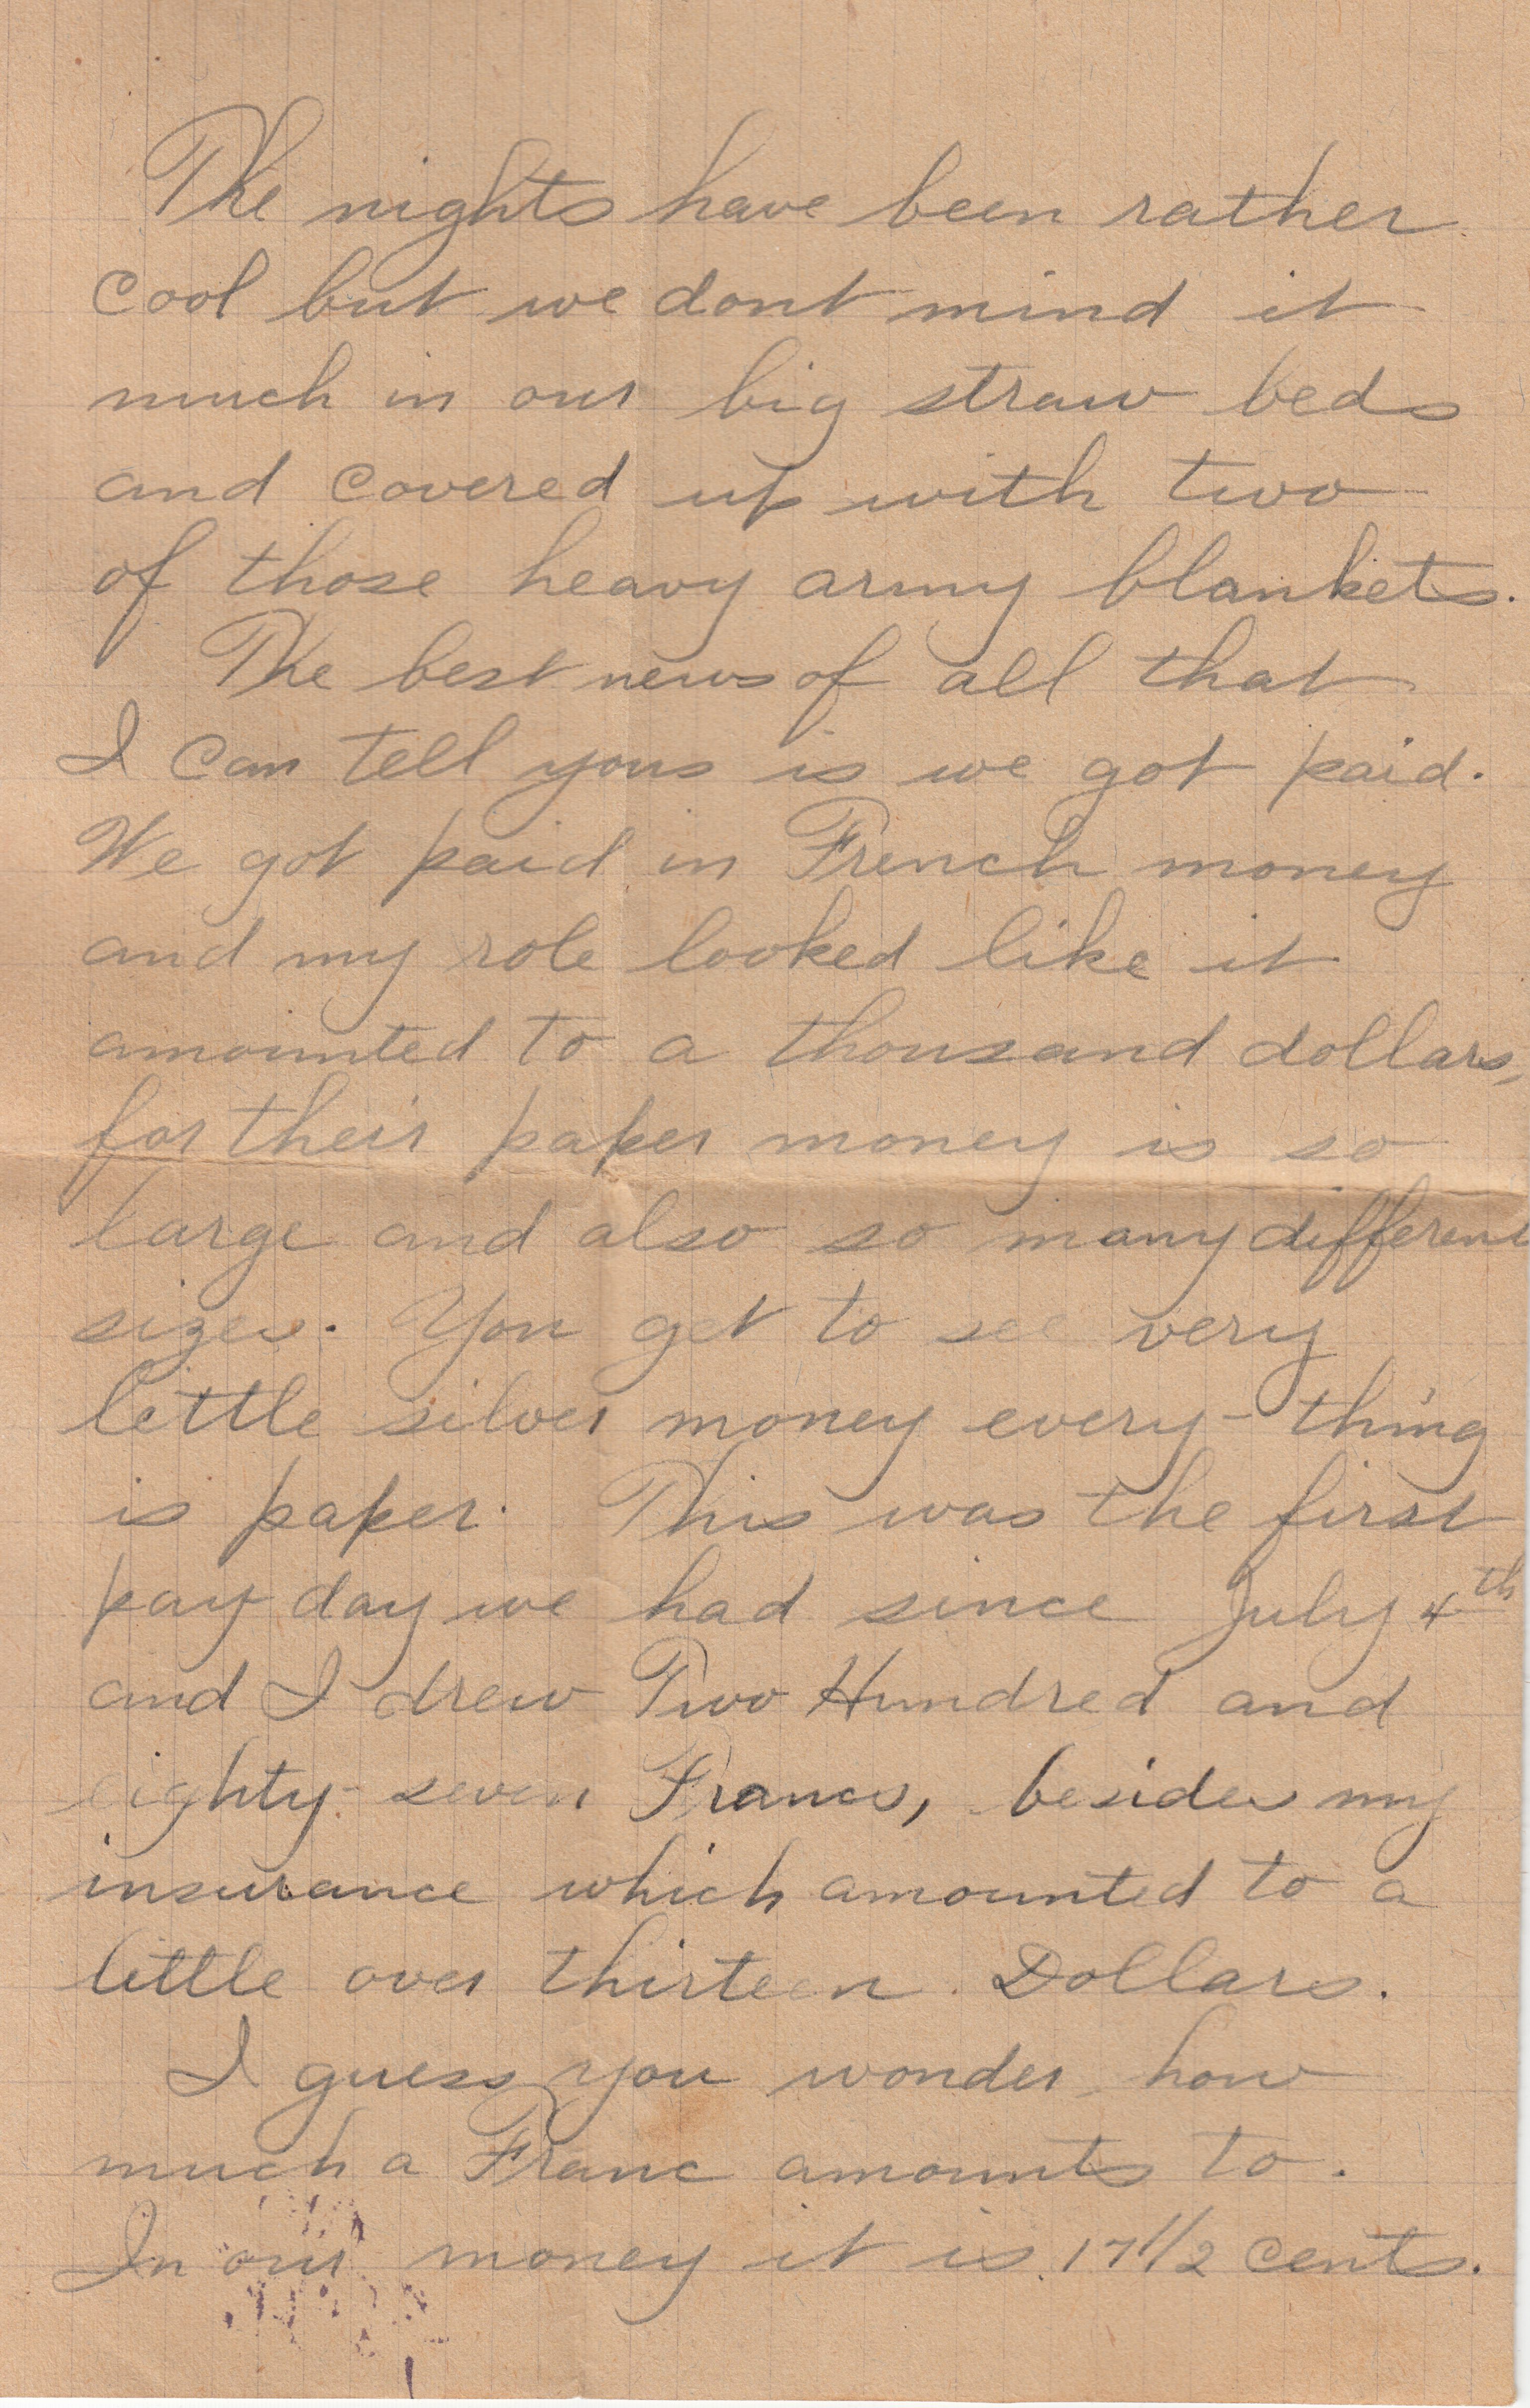 The nights have been rather
cool but we dont mind it
much in our big straw beds
and covered up with two
of those heavy army blankets.
The best news of all that
I can tell yous is we got paid.
We got paid in French money
and my role looked like it
amounted to a thousand dollars,
for their paper money is so
large and also so many different
sizes. You get to see very
little silver money every-thing
is paper. This was the first
pay day we had since July 4th
and I drew Two Hundred and
eighty-seven Francs, besides my
insurance which amounted to a
little over thirteen Dollars.
I guess you wonder how
much a Franc amounts to.
In our money it is 17 1/2 cents.